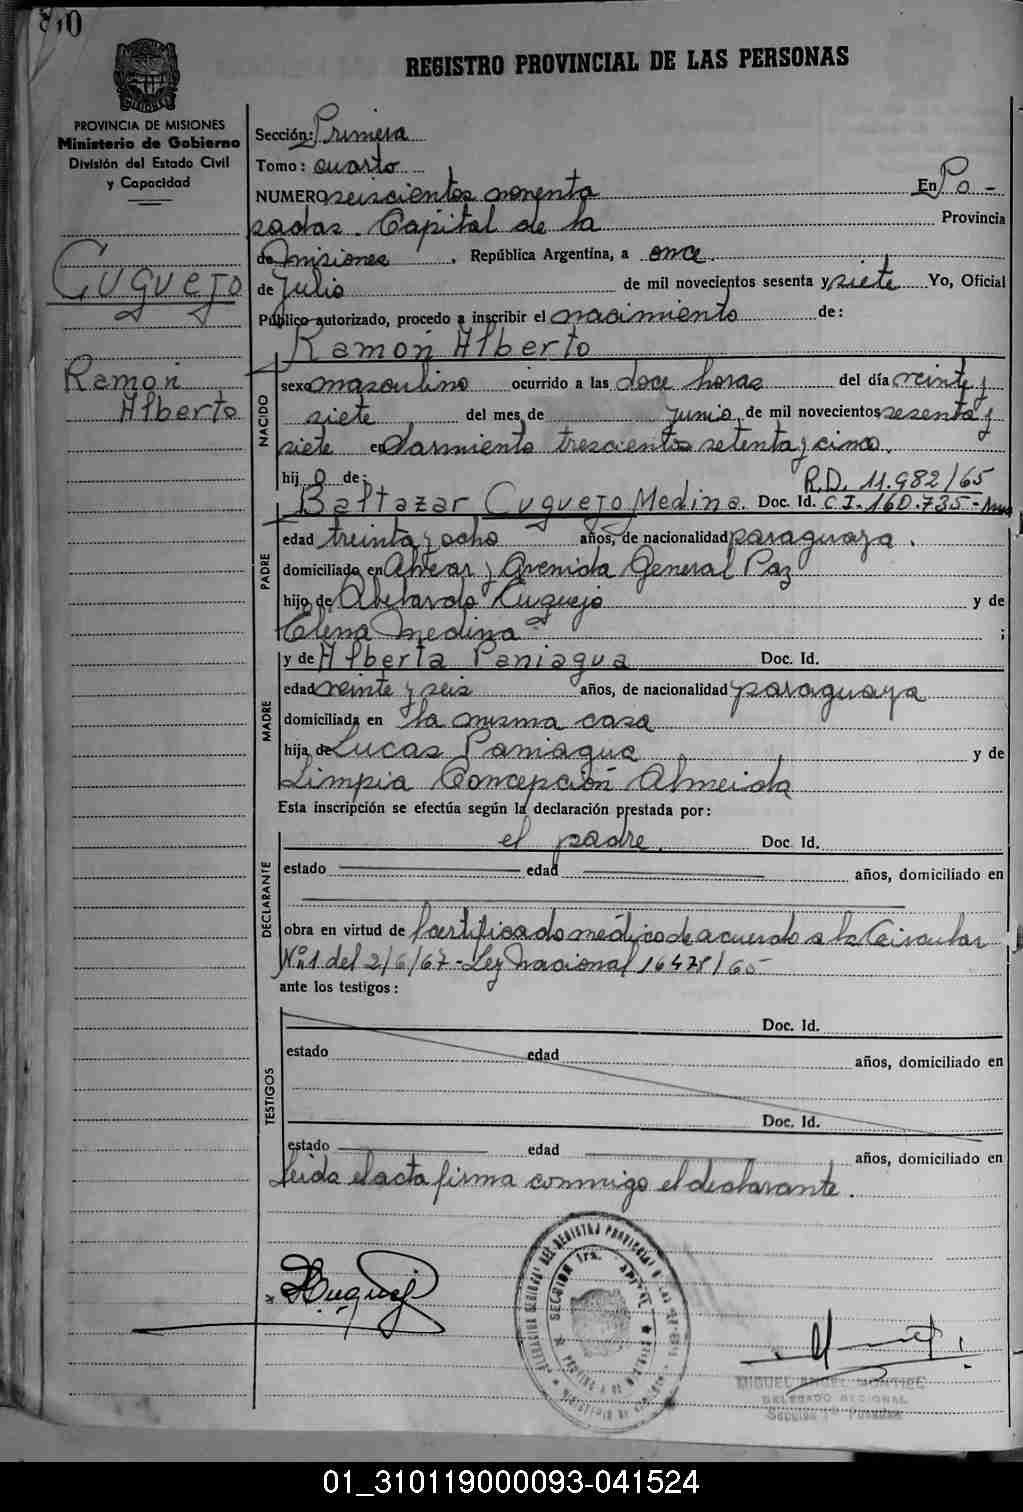 REGISTRO PROVINCIAL DE LAS PERSONAS
PROVINCIA DE MISIONES
Ministerio de Gobierno
División del Estado Civil
y Capacidad
Cuguejo
Ramón
Alberto
Sección: Primera
Tomo: cuarto
NUMERO seiscientos noventa En Po-
sadas. Capital de la Provincia
de misiones, República Argentina, a once
de Julio de mil novecientos sesenta y siete Yo, Oficial
Público autorizado, procedo a inscribir el nacimiento de:
Ramón Alberto
NACIDO
sexo masculino ocurrido a las doce horas del día veinte y
siete del mes de junio de mil novecientos sesenta y
siete en Sarmiento trescientos setenta y cinco.
hij o de: R.D. 11.982/65
Baltazar Cuguejo Medina. Doc. Id. C.I. 160.735-
PADRE
edad treinta y ocho años, de nacionalidad paraguaya.
domiciliado en Alvear y Avenida General Paz
hijo de Abelardo Cuguejo y de
Elena Medina ;
y de Alberta Paniagua Doc. Id.
MADRE
edad veinte y seis años, de nacionalidad paraguaya
domiciliada en la misma casa
hija de Lucas Paniagua y de
Limpia Concepción Almeida
Esta inscripción se efectúa según la declaración prestada por:
el padre. Doc. Id.
DECLARANTE
estado edad años, domiciliado en
obra en virtud de certificado médico de acuerdo a la Circular
Nº1 del 2/6/67-Ley Nacional 16478/65
ante los testigos:
Doc. Id.
TESTIGOS
estado edad años, domiciliado en
Doc. Id.
estado edad años, domiciliado en
Leida el acta firma conmigo el declarante.
MIGUEL ANGEL MONTIEL
DELEGADO REGIONAL
Sección 1ª Posadas
01_310119000093-041524